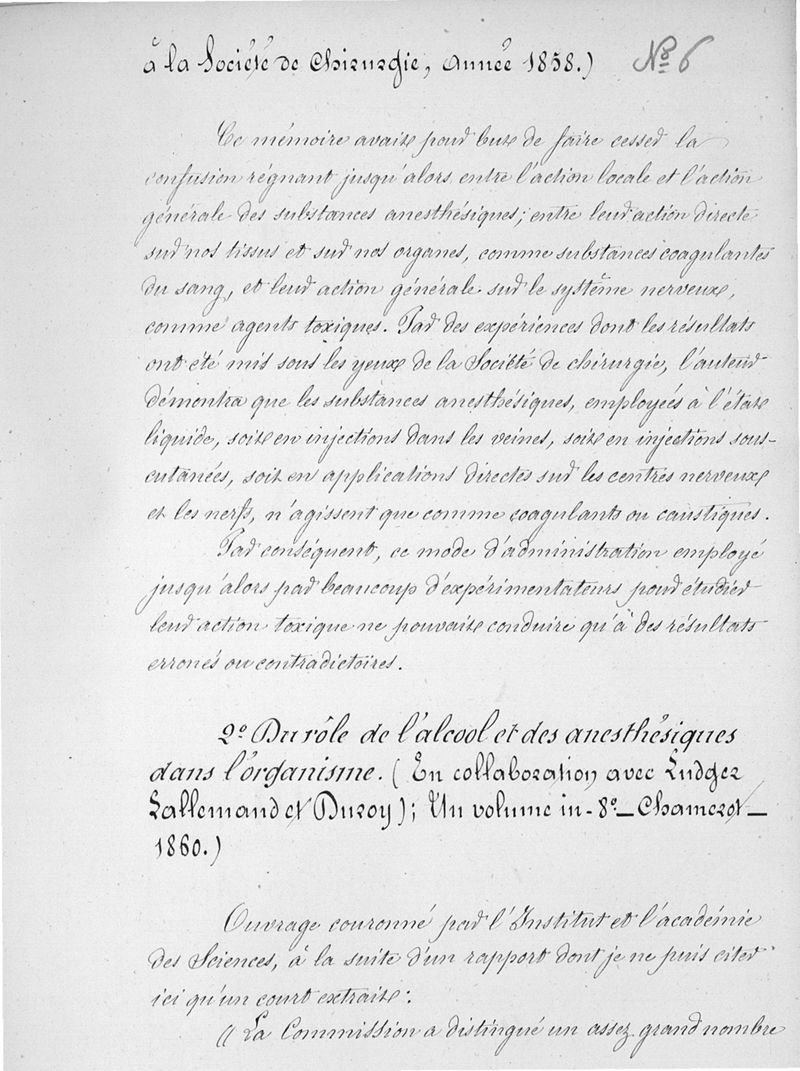 à la Société de Chirurgie, année 1858.) Nº 6
Ce mémoire avait pour but de faire cesser la
confusion régnant jusqu'alors, entre l'action locale et l'action
générale des substances anesthésiques; entre leur action directe
sur nos tissus et sur nos organes, comme substances coagulantes
du sang, et leur action générale sur le système nerveux,
comme agents toxiques. Par des expériences dont les résultats
ont été mis sous les yeux de la Société de chirurgie, l'auteur
démontra que les substances anesthésiques, employées à l'état
liquide, soit en injections dans les veines, soit en injections sous-
cutanées, soit en applications directes sur les centres nerveux
et les nerfs, n'agissent que comme coagulants ou caustiques.
Par conséquent, ce mode d'administration employé
jusqu'alors par beaucoup d'expérimentateurs pour étudier
leur action toxique ne pouvait conduire qu'à des résultats
erronés ou contradictoires.
2º Du rôle de l'alcool et des anesthésiques
dans l'organisme. (En collaboration avec Ludger
Lallemand et Duroy); Un volume in-8º_Chamerot_
1860.)
Ouvrage couronné par l'Institut et l'académie
des Sciences, à la suite d'un rapport dont je ne puis citer
ici qu'un court extrait:
"La Commission a distingué un assez grand nombre